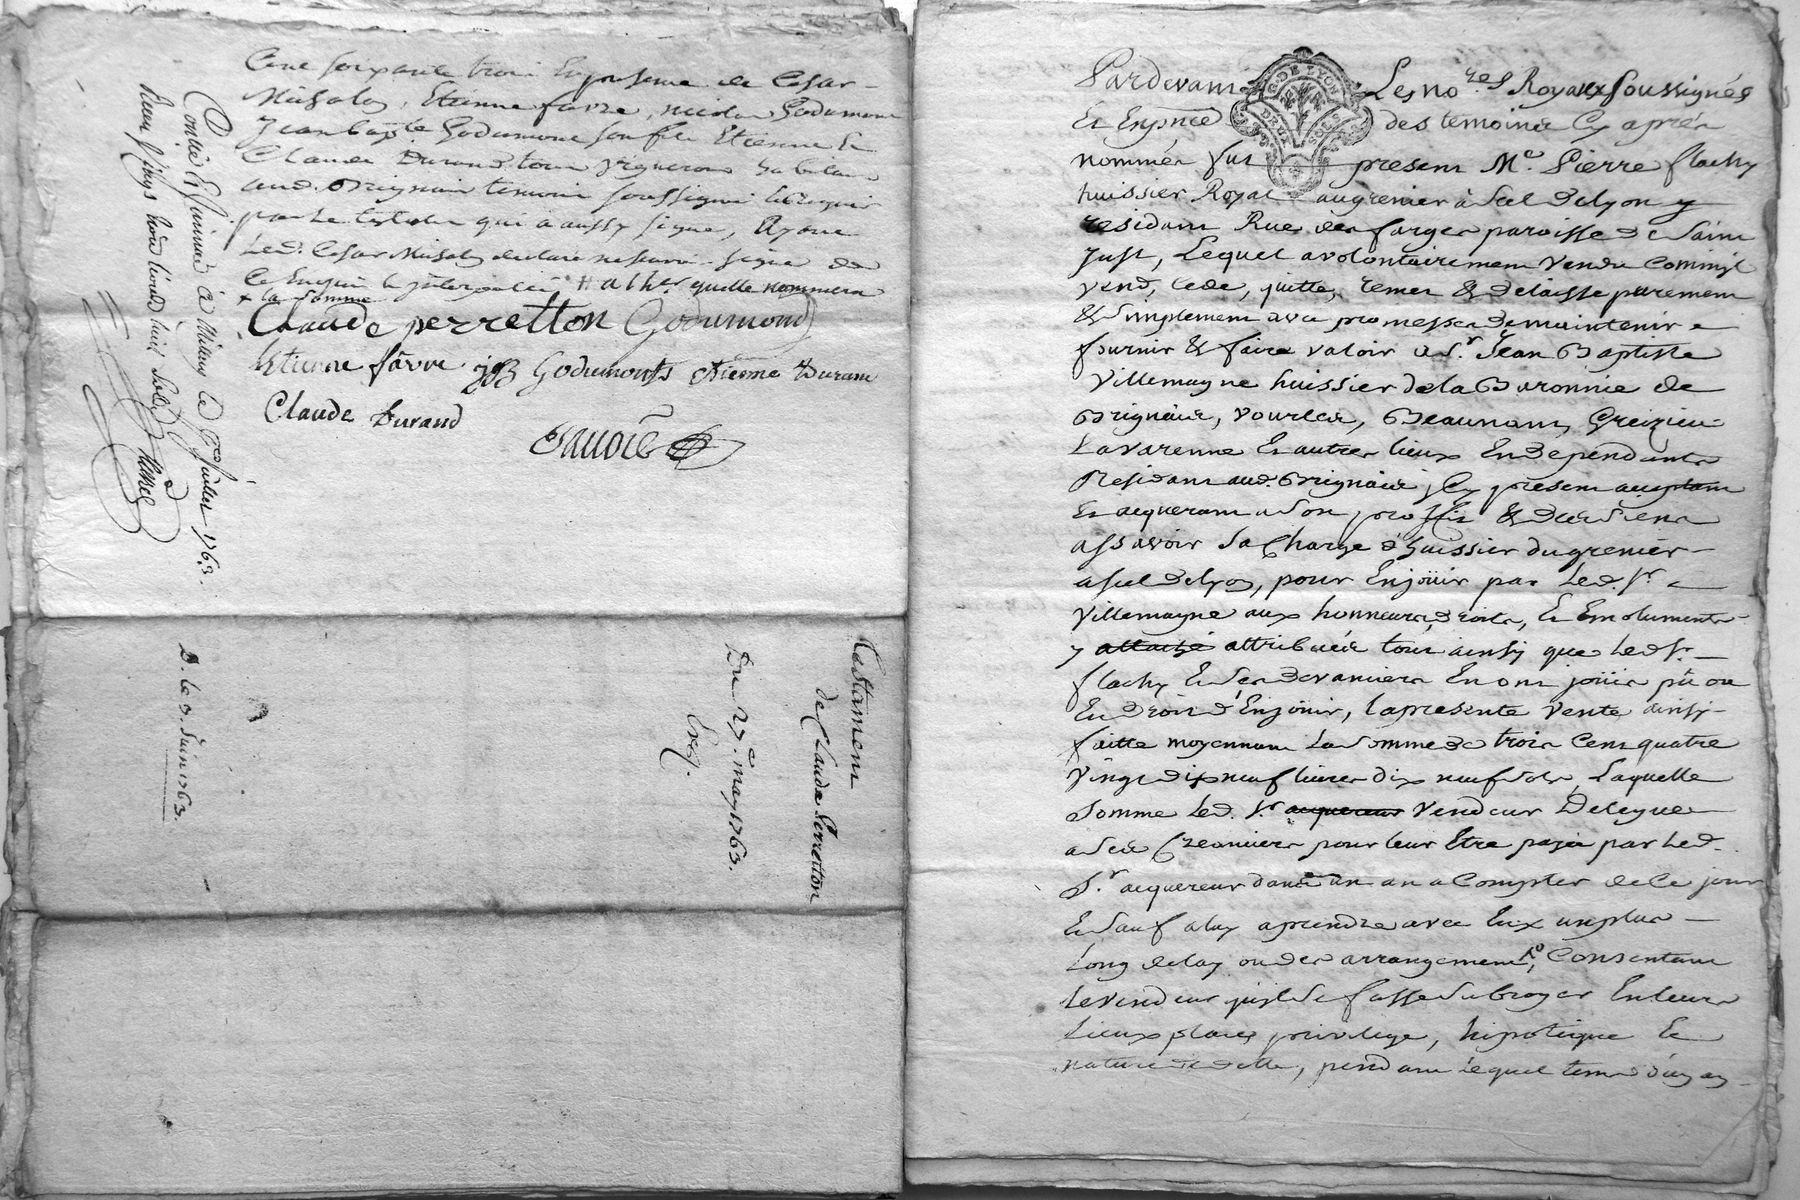 Cent soixante trois En presence de Cesar
Michalon, Etienne favre, nicolas Godumont
Jean baptiste Godumont son fils Etienne Et
Claude Durand tous vignerons habitans
aud. Brignais temoins soussignés Et requis
par le testateur qui a aussy signé, Ayant
Led. Cesar Michalon declaré ne scavoir signer de
ce Enquis &
+ la somme
Claude perretton Godumond
Etienne fâvre JB Godumonts Etienne Durant
Claude Durand
Controllé Et Insinué à Millery Le Juillet 1763.
Testament
de Claude Perretton
Du 27e. may 1763.
Exq.
D. le 9. Juin 1763.
G. DE LYON
DEUX SOLS
Pardevant Les nores Royaux soussignés
Et En pnce des temoins Cy aprés
nommés fut present Me. Pierre flachy
huissier Royal au grenier à sel de Lyon y
residant Rue des farges paroisse de saint
Just, Lequel a volontairement vendu comme il
vend, cede, quitte, remet & delaisse purement
& simplement avec promesse de maintenir
fournir & faire valoir a Sr. Jean Baptiste
Villemagne huissier de la Baronnie de
Brignais, Vourles, Beaunant, Greizieu
Lavarenne Et autres lieux En dependants
Residant aud. Brignais jcy present acceptant
Et acquerant a son proffit & des siens
assavoir sa Charge d'huissier du grenier
a sel de Lyon, pour En joüir par Led. Sr.
Villemagne aux honneurs, droits, Et Emoluments
y attaché attribués tout ainsy que Led. Sr.
flachy Et ses devanciers En ont joüis pû ou
Eu droit d'En jouir, la presente vente ainsy
faitte moyennant La somme de trois Cent quatre
vingt dix neuf livres dix neuf sols, Laquelle
somme Led. Sr. acquereur vendeur Delegue
a ses Creanciers pour leur Etre payée par Led.
Sr. acquereur dans un an a Compter de Ce jour
Et sauf a luy a prendre avec Eux un plus
Long delay ou des arrangements, Consentant
Le vendeur qu'il se fasse subroger En leurs
Lieux place, privilege, hipoteque Et
nature de dette, pendant Lequel tems d'un an